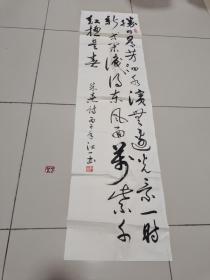 勝日尋芳泗水濱無邊光景一時
新等閒識得東風面萬紫千
紅總是春
朱熹詩